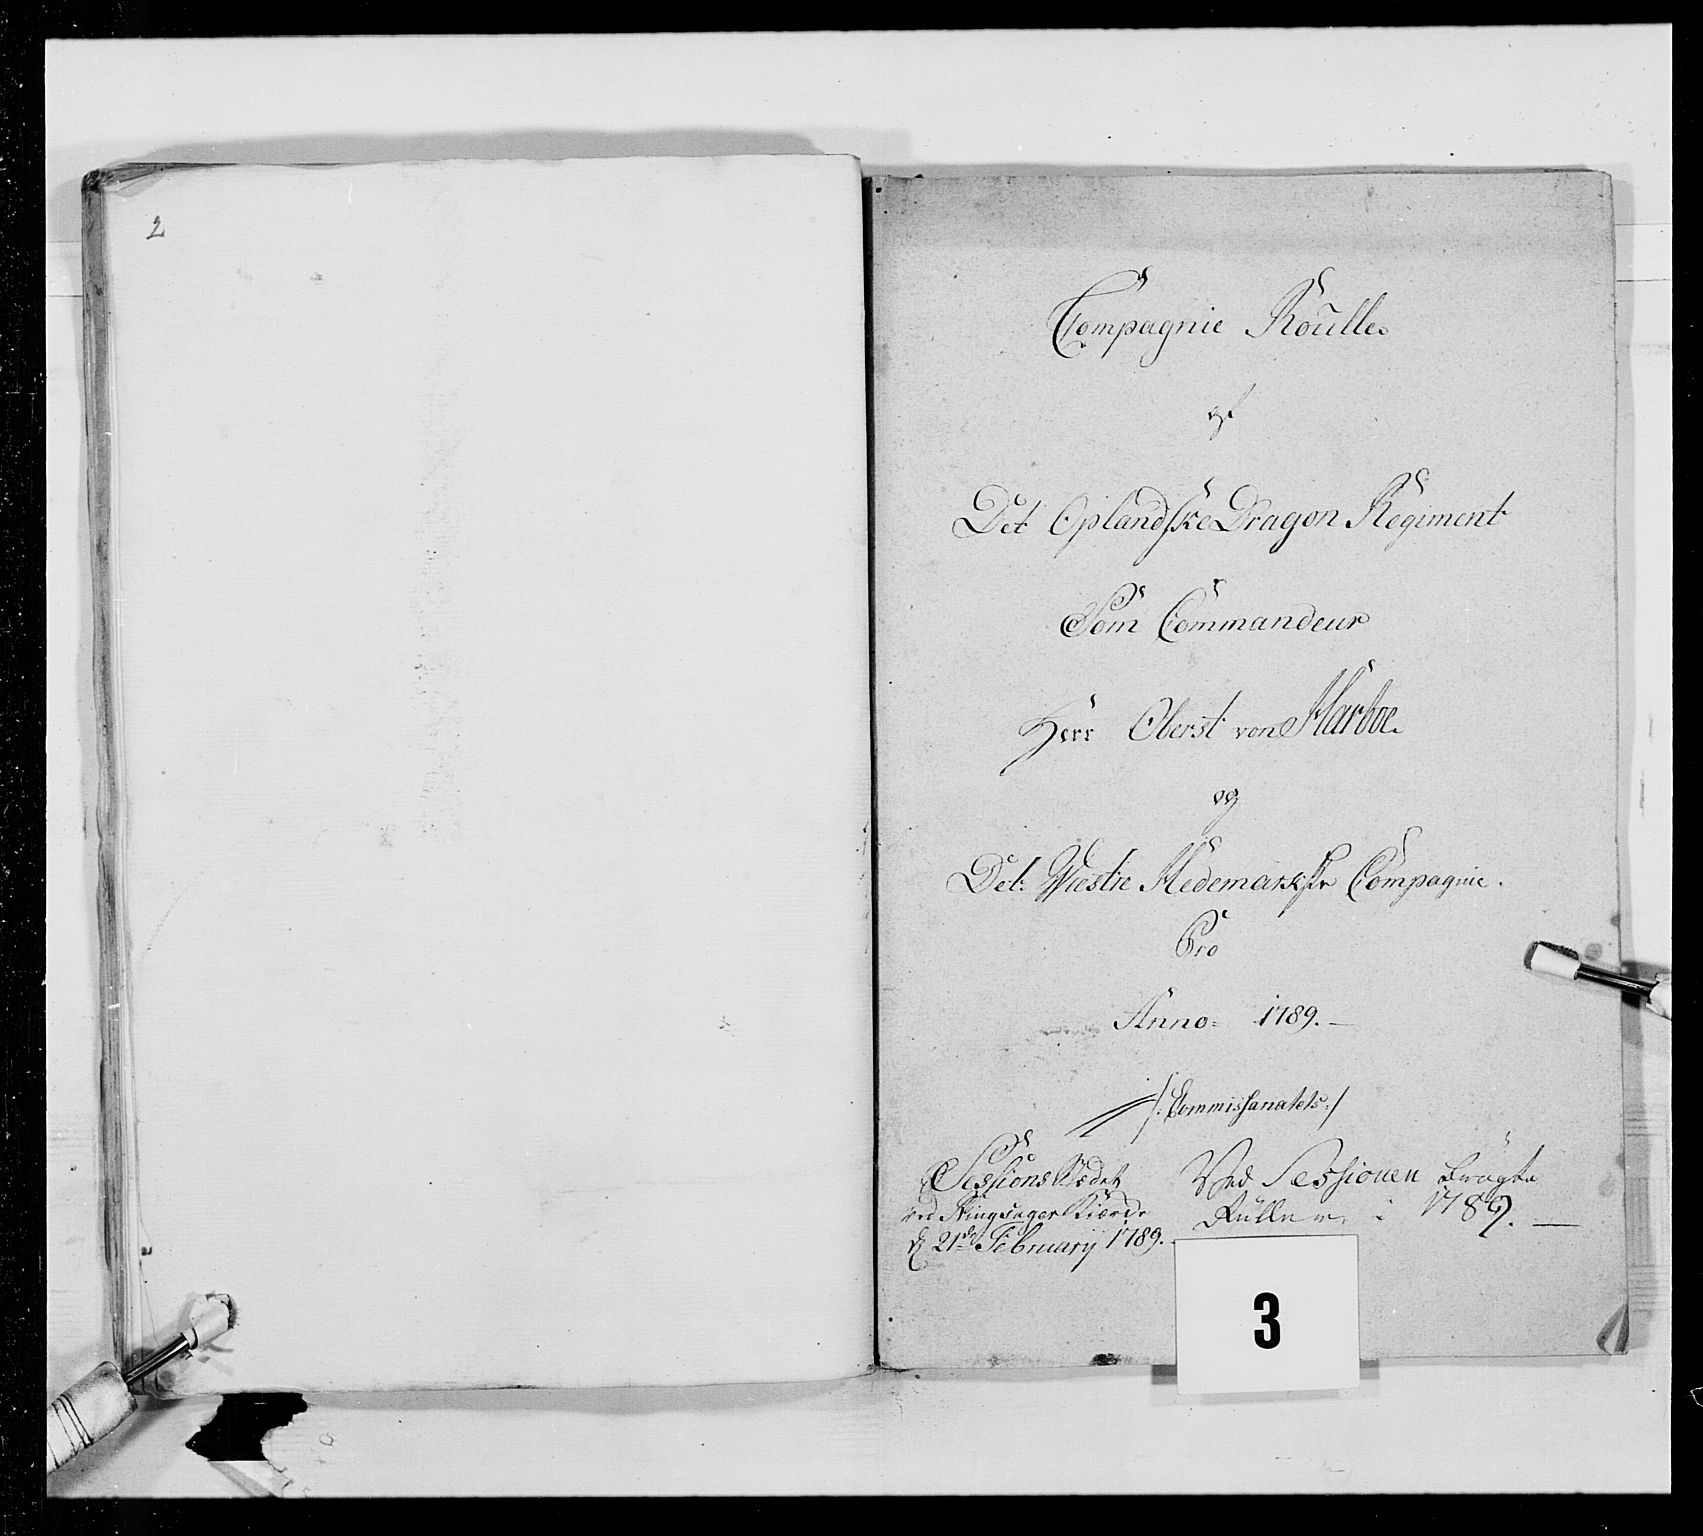 2
Compagnie Roulle
af
Det Oplandske Dragon Regiment
Som Commandeur
Herr Oberst von Harboe
og
Det Wæstre Hedemarkske Compagnie.
Pro
Anno 1789.
/: Commissariatets :/
Sessions Stædet
ved Ringsager Kircke
d 21de February 1789.
Ved Sessionen Bragte
Rulle i 1789.
3